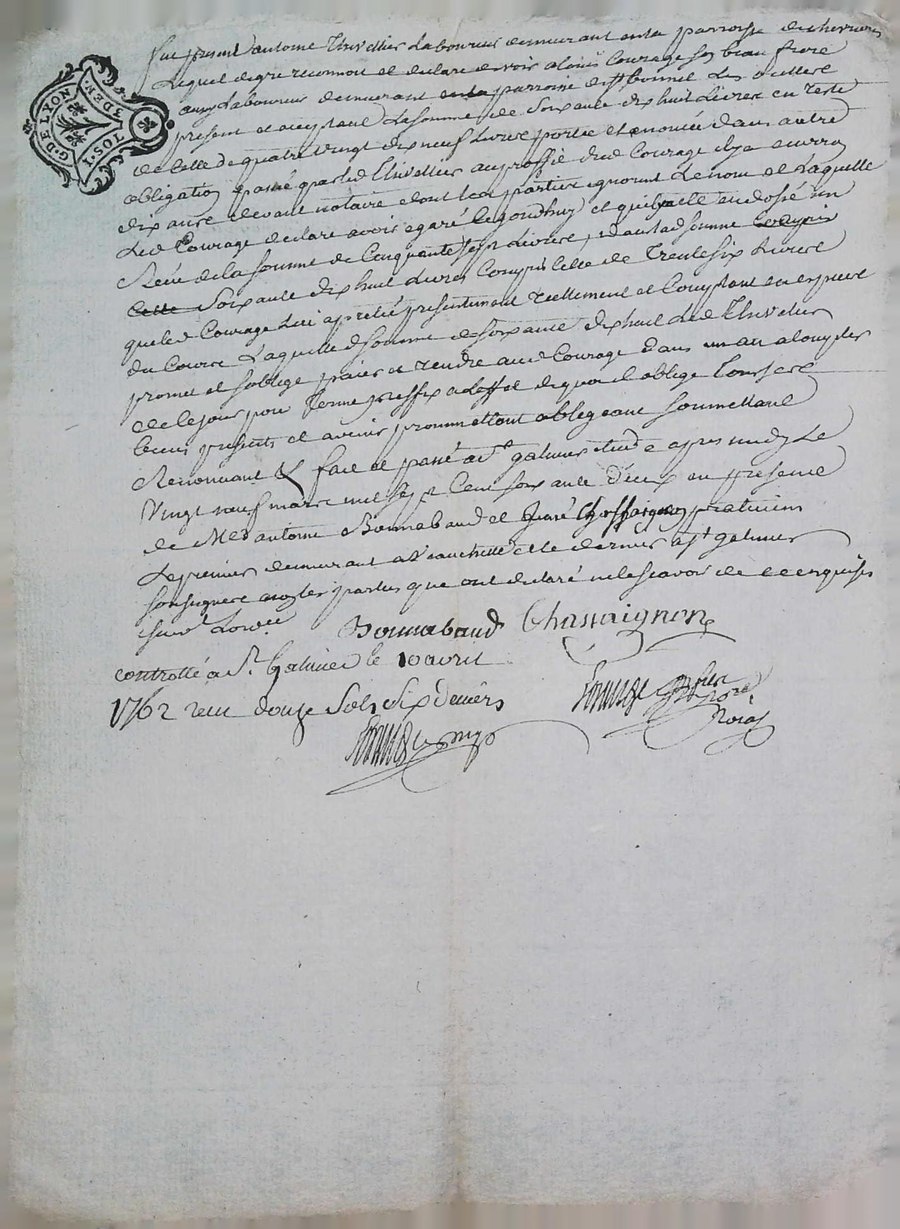 G. DE LYON
1. SOL. 4. DEN.
fut present antoine Thivellier Laboureur demeurant en la parroisse de chevrieres
Lequel de gre reconnoit et declare devoir a Louis Courage son beau frere
aussy Laboureur demeurant parroisse de st bonnet Les oulliere
present et acceptant La somme de soixante dix huit Livres en reste
de celle de quatre vingt dix neuf Livres portée et enoncée dans autre
obligation passé par led Thivellier au proffit dud Courage il y a environ
dix ans devant notaire dont les parties ignorent Le nom et Laquelle
Led Courage declare avoir egaré et quil a été endossé un
Recu de la somme de Cinquante sept Livres, dans lad somme
cette soixante dix huit Livres Compris celle de Trente six Livres
que led Courage Lui a preté presentement reellement et Comptant en especes
du Cours Laquelle d somme de soixante dix huit Led Thivellier
promet et soblige paier et rendre aud Courage dans un an a compter
de ce jour pour Terme preffix a leffet de quoi il oblige Tous ses
biens presents et avenir promettant obligeant soumettant
Renonçant & fait et passé a st galmier Etude apres midy Le
Vingt neuf mars mil sept cent soixante deux en presence
de Me antoine Bonnabaud et Chassaignon praticiens
Le premier demeurant a et le dernier a st galmier
soussignere non les parties que ont declaré ne le scavoir de ce enquises
Bonnabaud Chassaignon
controllé a St. Galmier le 10 avril
1762 recu douze sols six deniers